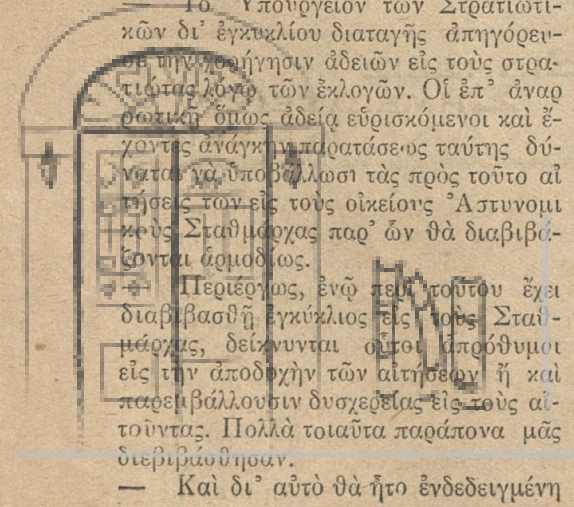 — Τὸ Ὑπουργεῖον τῶν Στρατιωτι-
κῶν δι’ ἐγκυκλίου διαταγῆς ἀπηγόρευ-
σε τὴν χορήγησιν ἀδειῶν εἰς τοὺς στρα-
τιώτας λόγῳ τῶν ἐκλογῶν. Οἱ ἐπ’ ἀναρ
ρωτικῇ ὅμως ἀδείᾳ εὑρισκόμενοι καὶ ἔ-
χοντες ἀνάγκην παρατάσεως ταύτης δύ-
νανται νὰ ὑποβάλλωσι τὰς πρὸς τοῦτο αἰ
τήσεις των εἰς τοὺς οἰκείους Ἀστυνομι
κοὺς Σταθμάρχας παρ’ ὧν θὰ διαβιβά-
ζονται ἁρμοδίως.
— Περιέργως, ἐνῷ περὶ τούτου ἔχει
διαβιβασθῆ ἐγκύκλιος εἰς τοὺς Σταθ-
μάρχας, δείκνυνται οὗτοι ἀπρόθυμοι
εἰς τὴν ἀποδοχὴν τῶν αἰτήσεων ἢ καὶ
παρεμβάλλουσιν δυσχερείας εἰς τοὺς αἰ-
τοῦντας. Πολλὰ τοιαῦτα παράπονα μᾶς
διεβιβάσθησαν.
— Καὶ δι’ αὐτὸ θὰ ἦτο ἐνδεδειγμένη